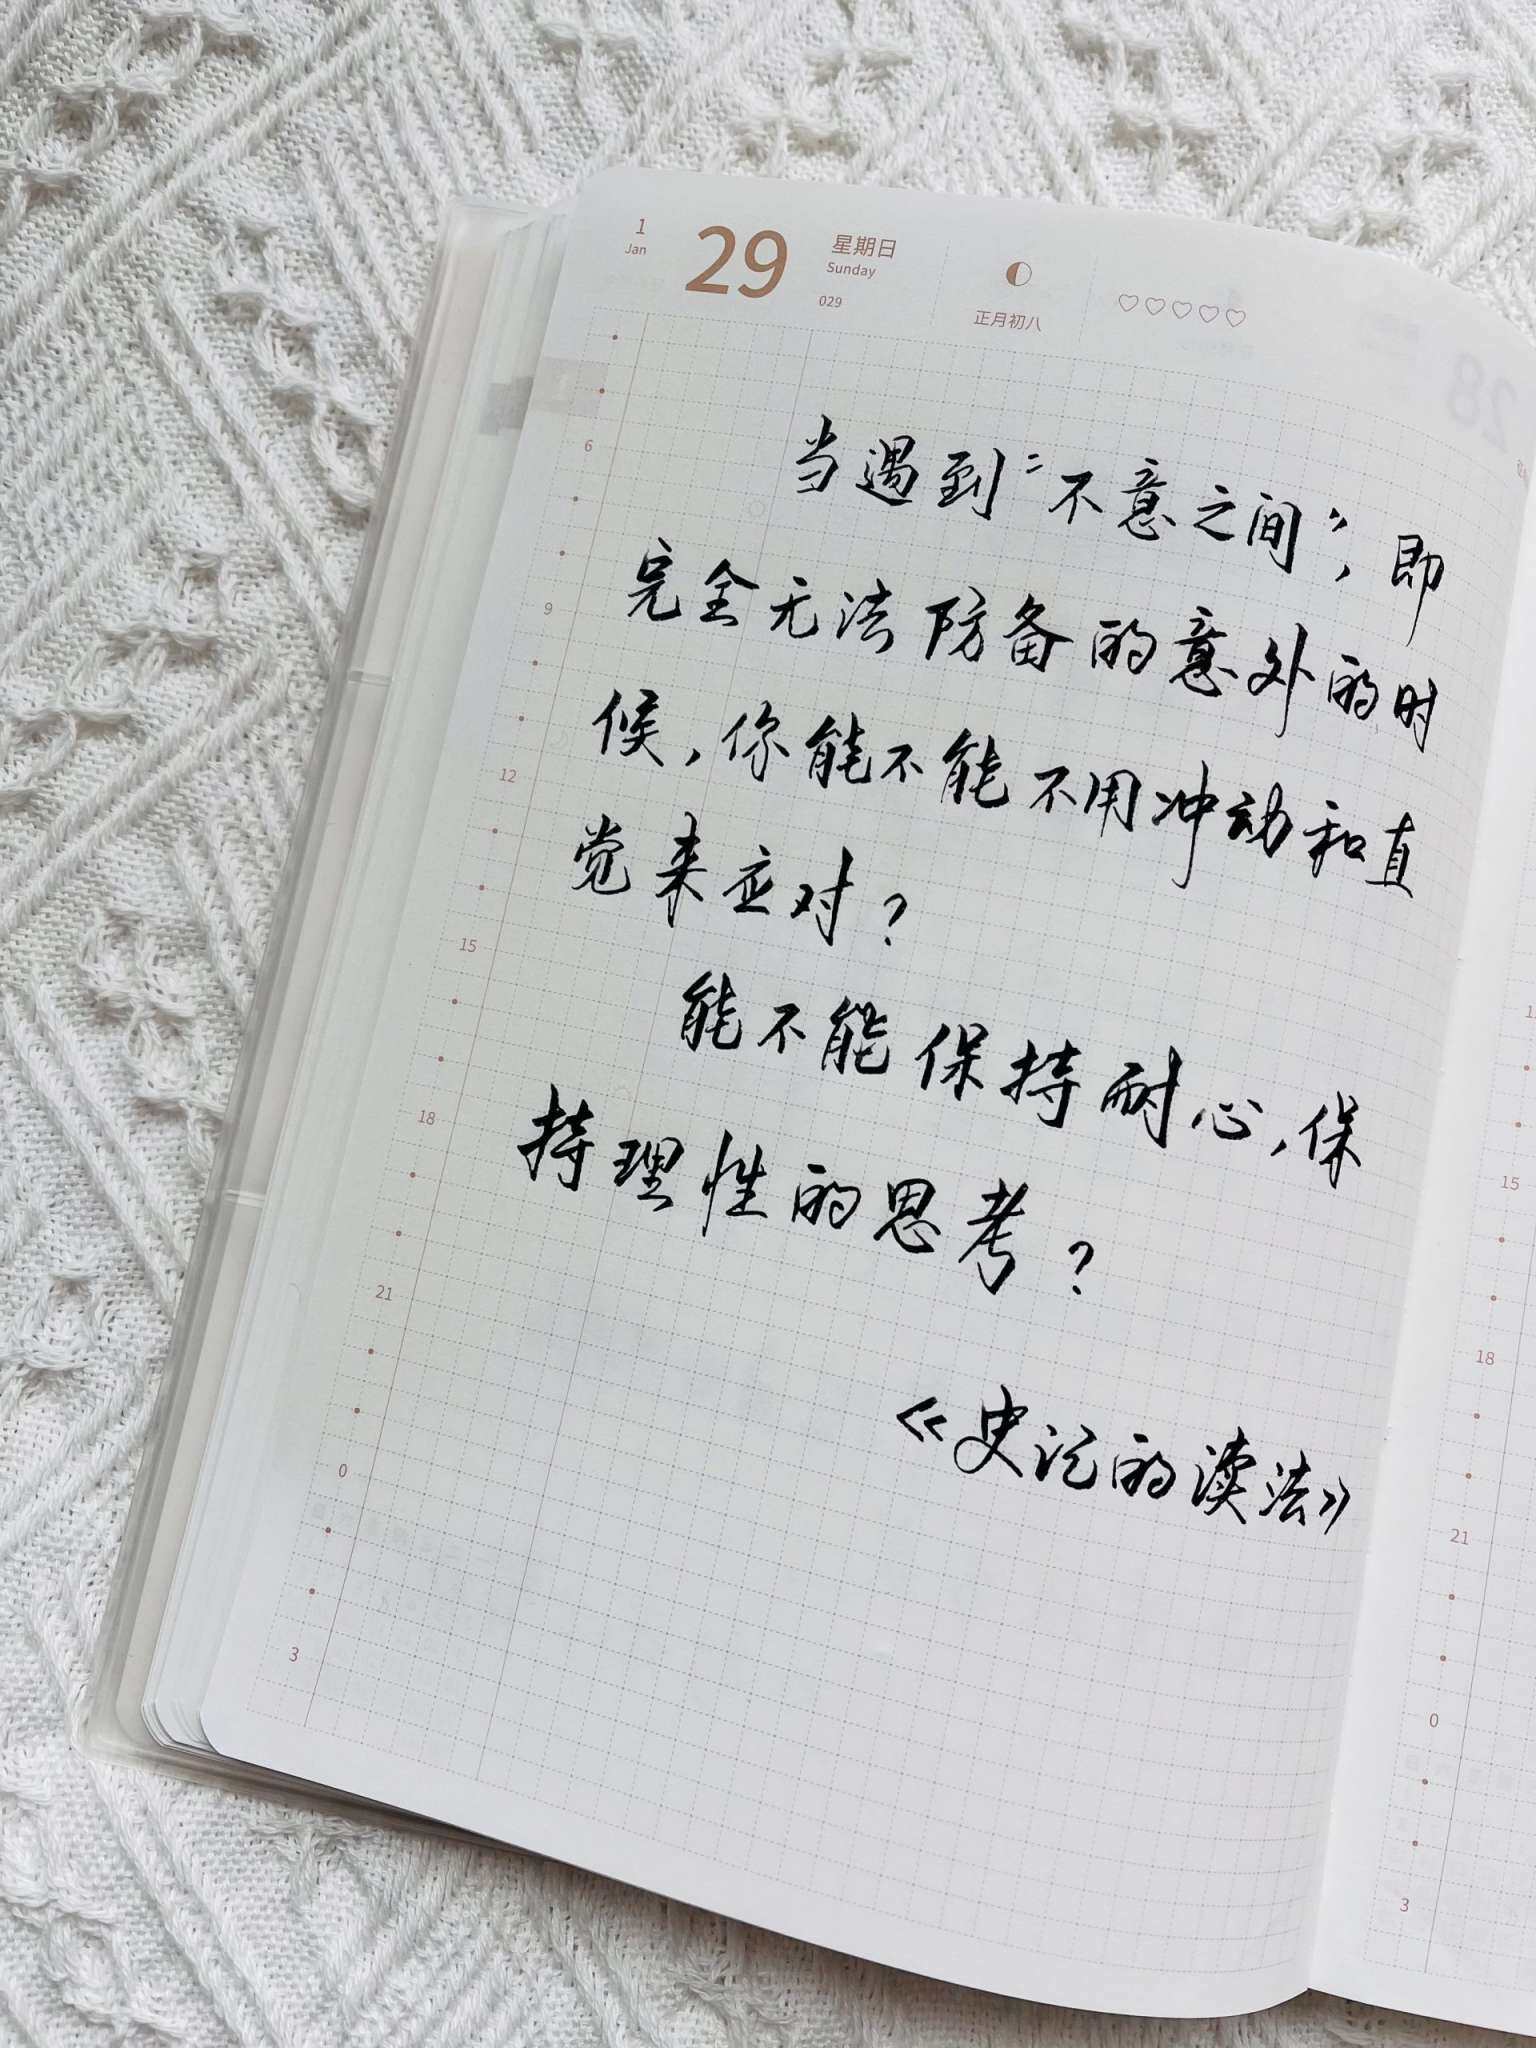 1
Jan
29
星期日
Sunday
029
正月初八
28
当遇到“不意之间”，即
完全无法防备的意外的时
候，你能不能不用冲动和直
觉来应对？
能不能保持耐心，保
持理性的思考？
《史记的读法》
6
9
12
15
18
21
0
3
15
18
21
0
3